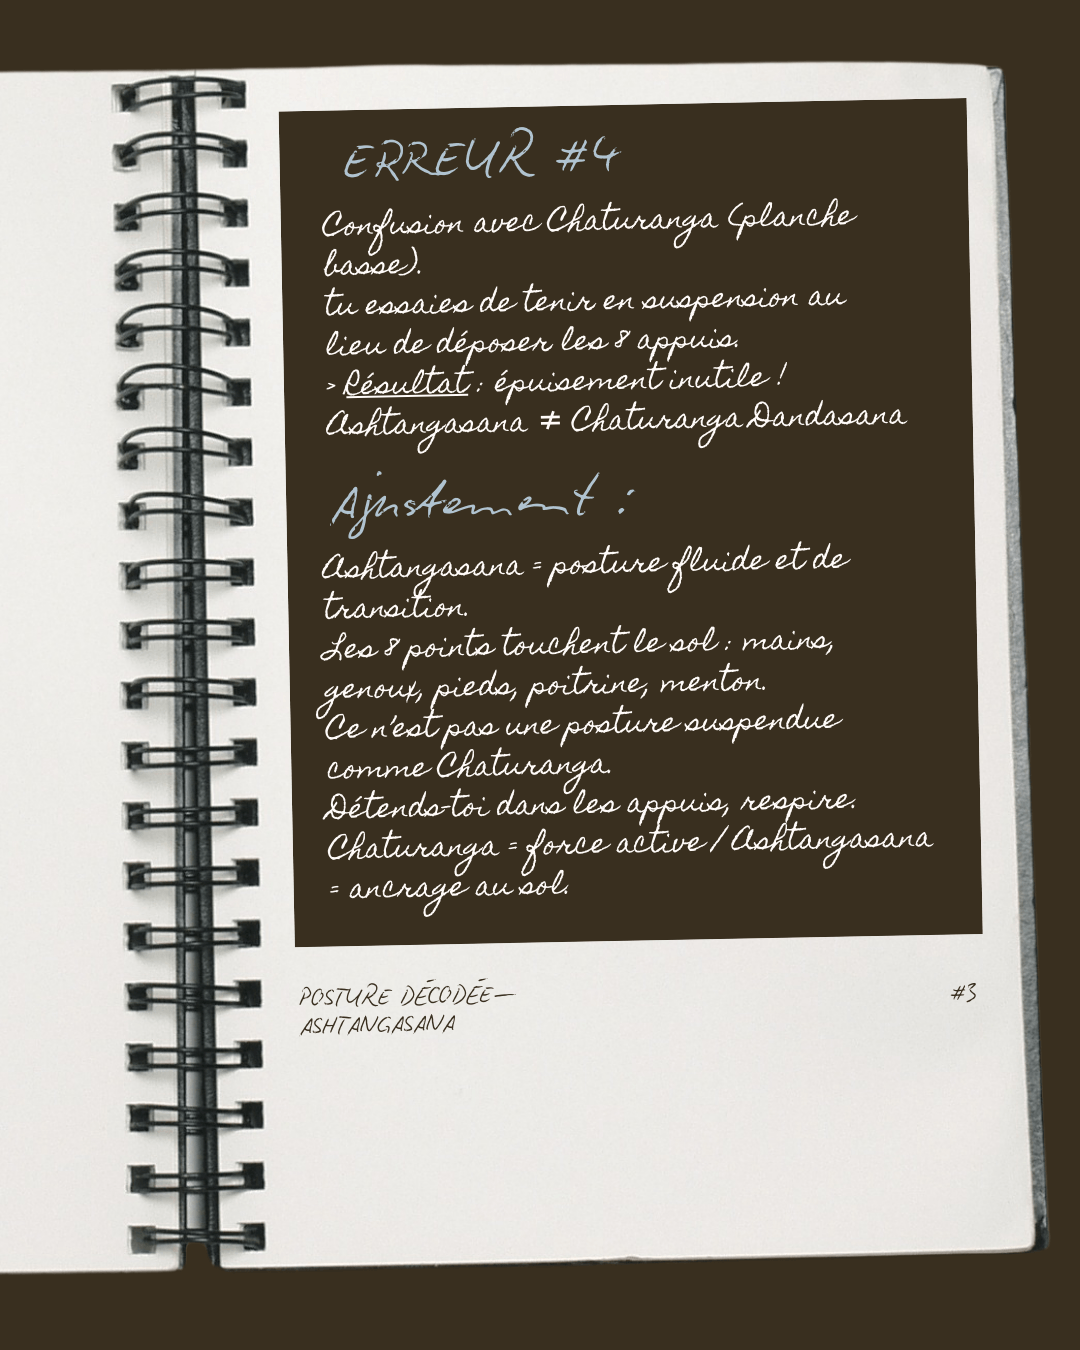 ERREUR #4
Confusion avec Chaturanga (planche
basse).
tu essaies de tenir en suspension au
lieu de déposer les 8 appuis.
> Résultat : épuisement inutile !
Ashtangasana ≠ Chaturanga Dandasana
Ajustement :
Ashtangasana = posture fluide et de
transition.
Les 8 points touchent le sol : mains,
genoux, pieds, poitrine, menton.
Ce n'est pas une posture suspendue
comme Chaturanga.
Détends-toi dans les appuis, respire.
Chaturanga = force active / Ashtangasana
= ancrage au sol.
POSTURE DÉCODÉE—
ASHTANGASANA
#3